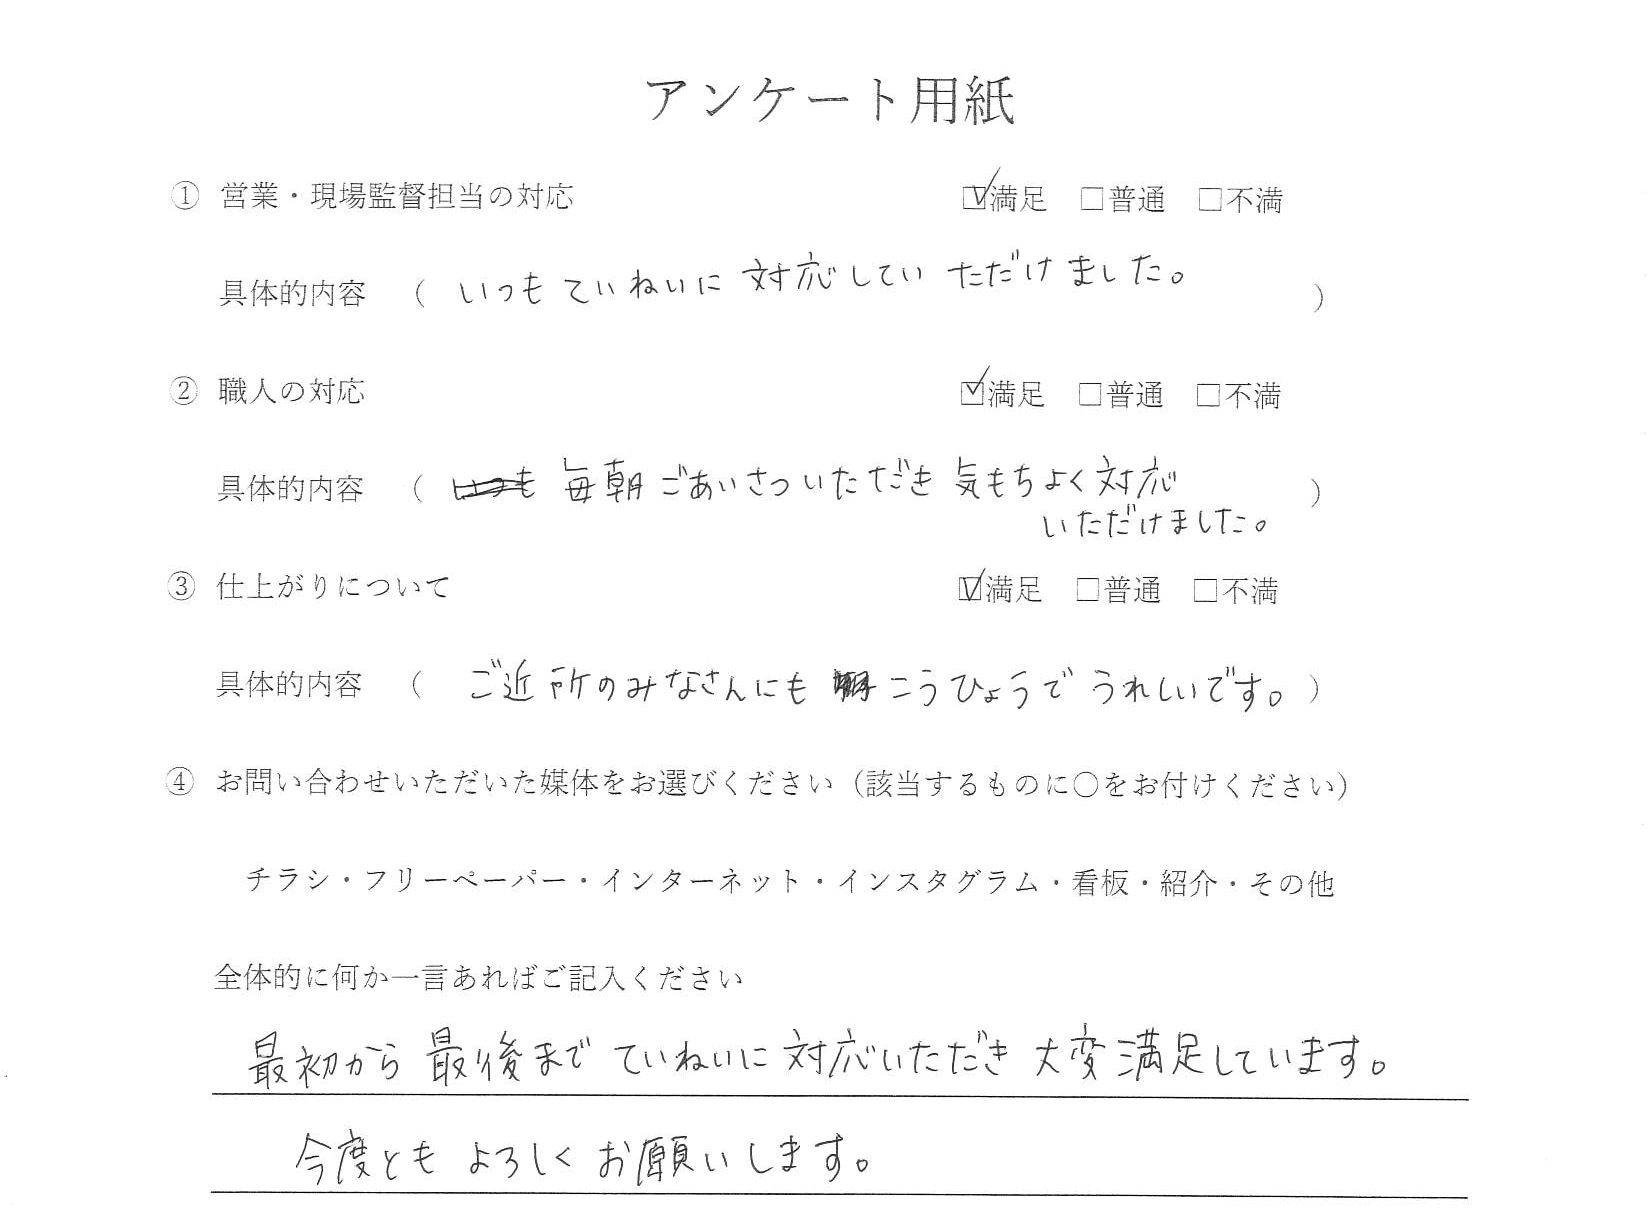 アンケート用紙
① 営業・現場監督担当の対応 ☑満足 □普通 □不満
具体的内容 （ いつもていねいに対応していただけました。 ）
② 職人の対応 ☑満足 □普通 □不満
具体的内容 （ いつも 毎朝ごあいさついただき気もちよく対応 ）
いただけました。
③ 仕上がりについて ☑満足 □普通 □不満
具体的内容 （ ご近所のみなさんにもこうひょうでうれしいです。）
④ お問い合わせいただいた媒体をお選びください（該当するものに〇をお付けください）
チラシ・フリーペーパー・インターネット・インスタグラム・看板・紹介・その他
全体的に何か一言あればご記入ください
最初から最後までていねいに対応いただき大変満足しています。
今度ともよろしくお願いします。